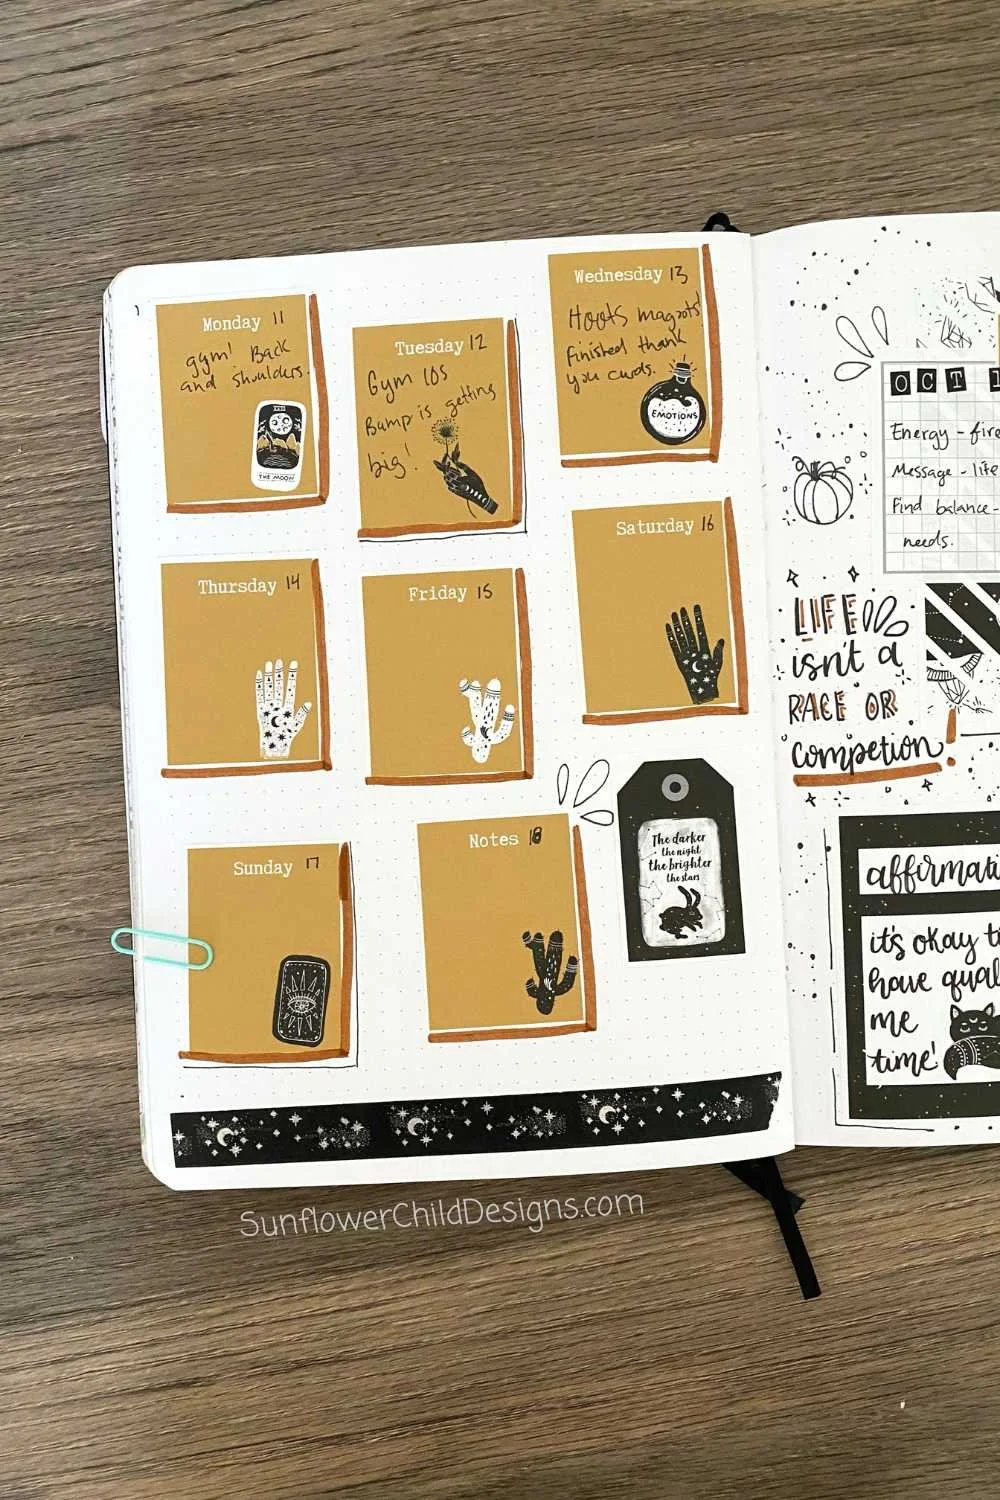 Monday 11
gym! Back
and shoulders.
THE MOON
Tuesday 12
Gym
Bump is getting
big!
Wednesday 13
Hoots magnots!
Finished thank
you cards.
EMOTIONS
Thursday 14
Friday 15
Saturday 16
Sunday 17
Notes 18
The darker
the night
the brighter
the stars
OCT 1
Energy - fire
Message - life
Find balance -
needs.
LIFE
isn't a
RACE OR
competion!
affirmati
it's okay ti
have qual
me
time!
SunflowerChildDesigns.com